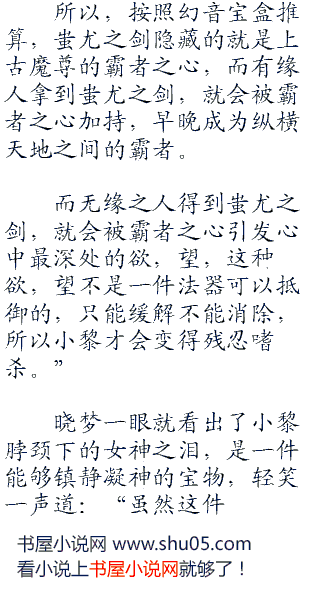 所以，按照幻音宝盒推
算，蚩尤之剑隐藏的就是上
古魔尊的霸者之心，而有缘
人拿到蚩尤之剑，就会被霸
者之心加持，早晚成为纵横
天地之间的霸者。
而无缘之人得到蚩尤之
剑，就会被霸者之心引发心
中最深处的欲，望，这种
欲，望不是一件法器可以抵
御的，只能缓解不能消除，
所以小黎才会变得残忍嗜
杀。”
晓梦一眼就看出了小黎
脖颈下的女神之泪，是一件
能够镇静凝神的宝物，轻笑
一声道：“虽然这件
书屋小说网 www.shu05.com
看小说上书屋小说网就够了！